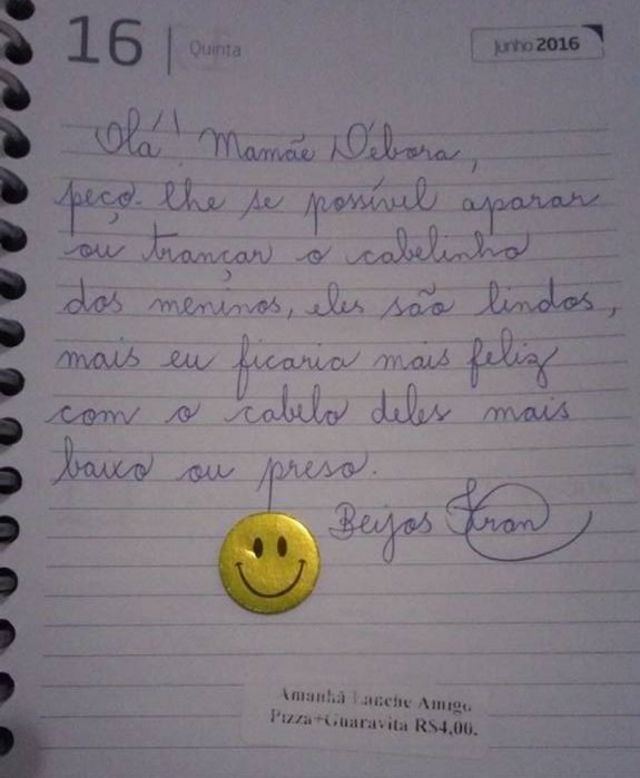 16 | Quinta
Junho 2016
Olá!! Mamãe Débora,
peço-lhe se possível aparar
ou trançar o cabelinho
dos meninos, eles são lindos,
mais eu ficaria mais feliz
com o cabelo deles mais
baixo ou preso.
Beijos Fran
Amanhã Lanche Amigo
Pizza+Guaravita R$4,00.